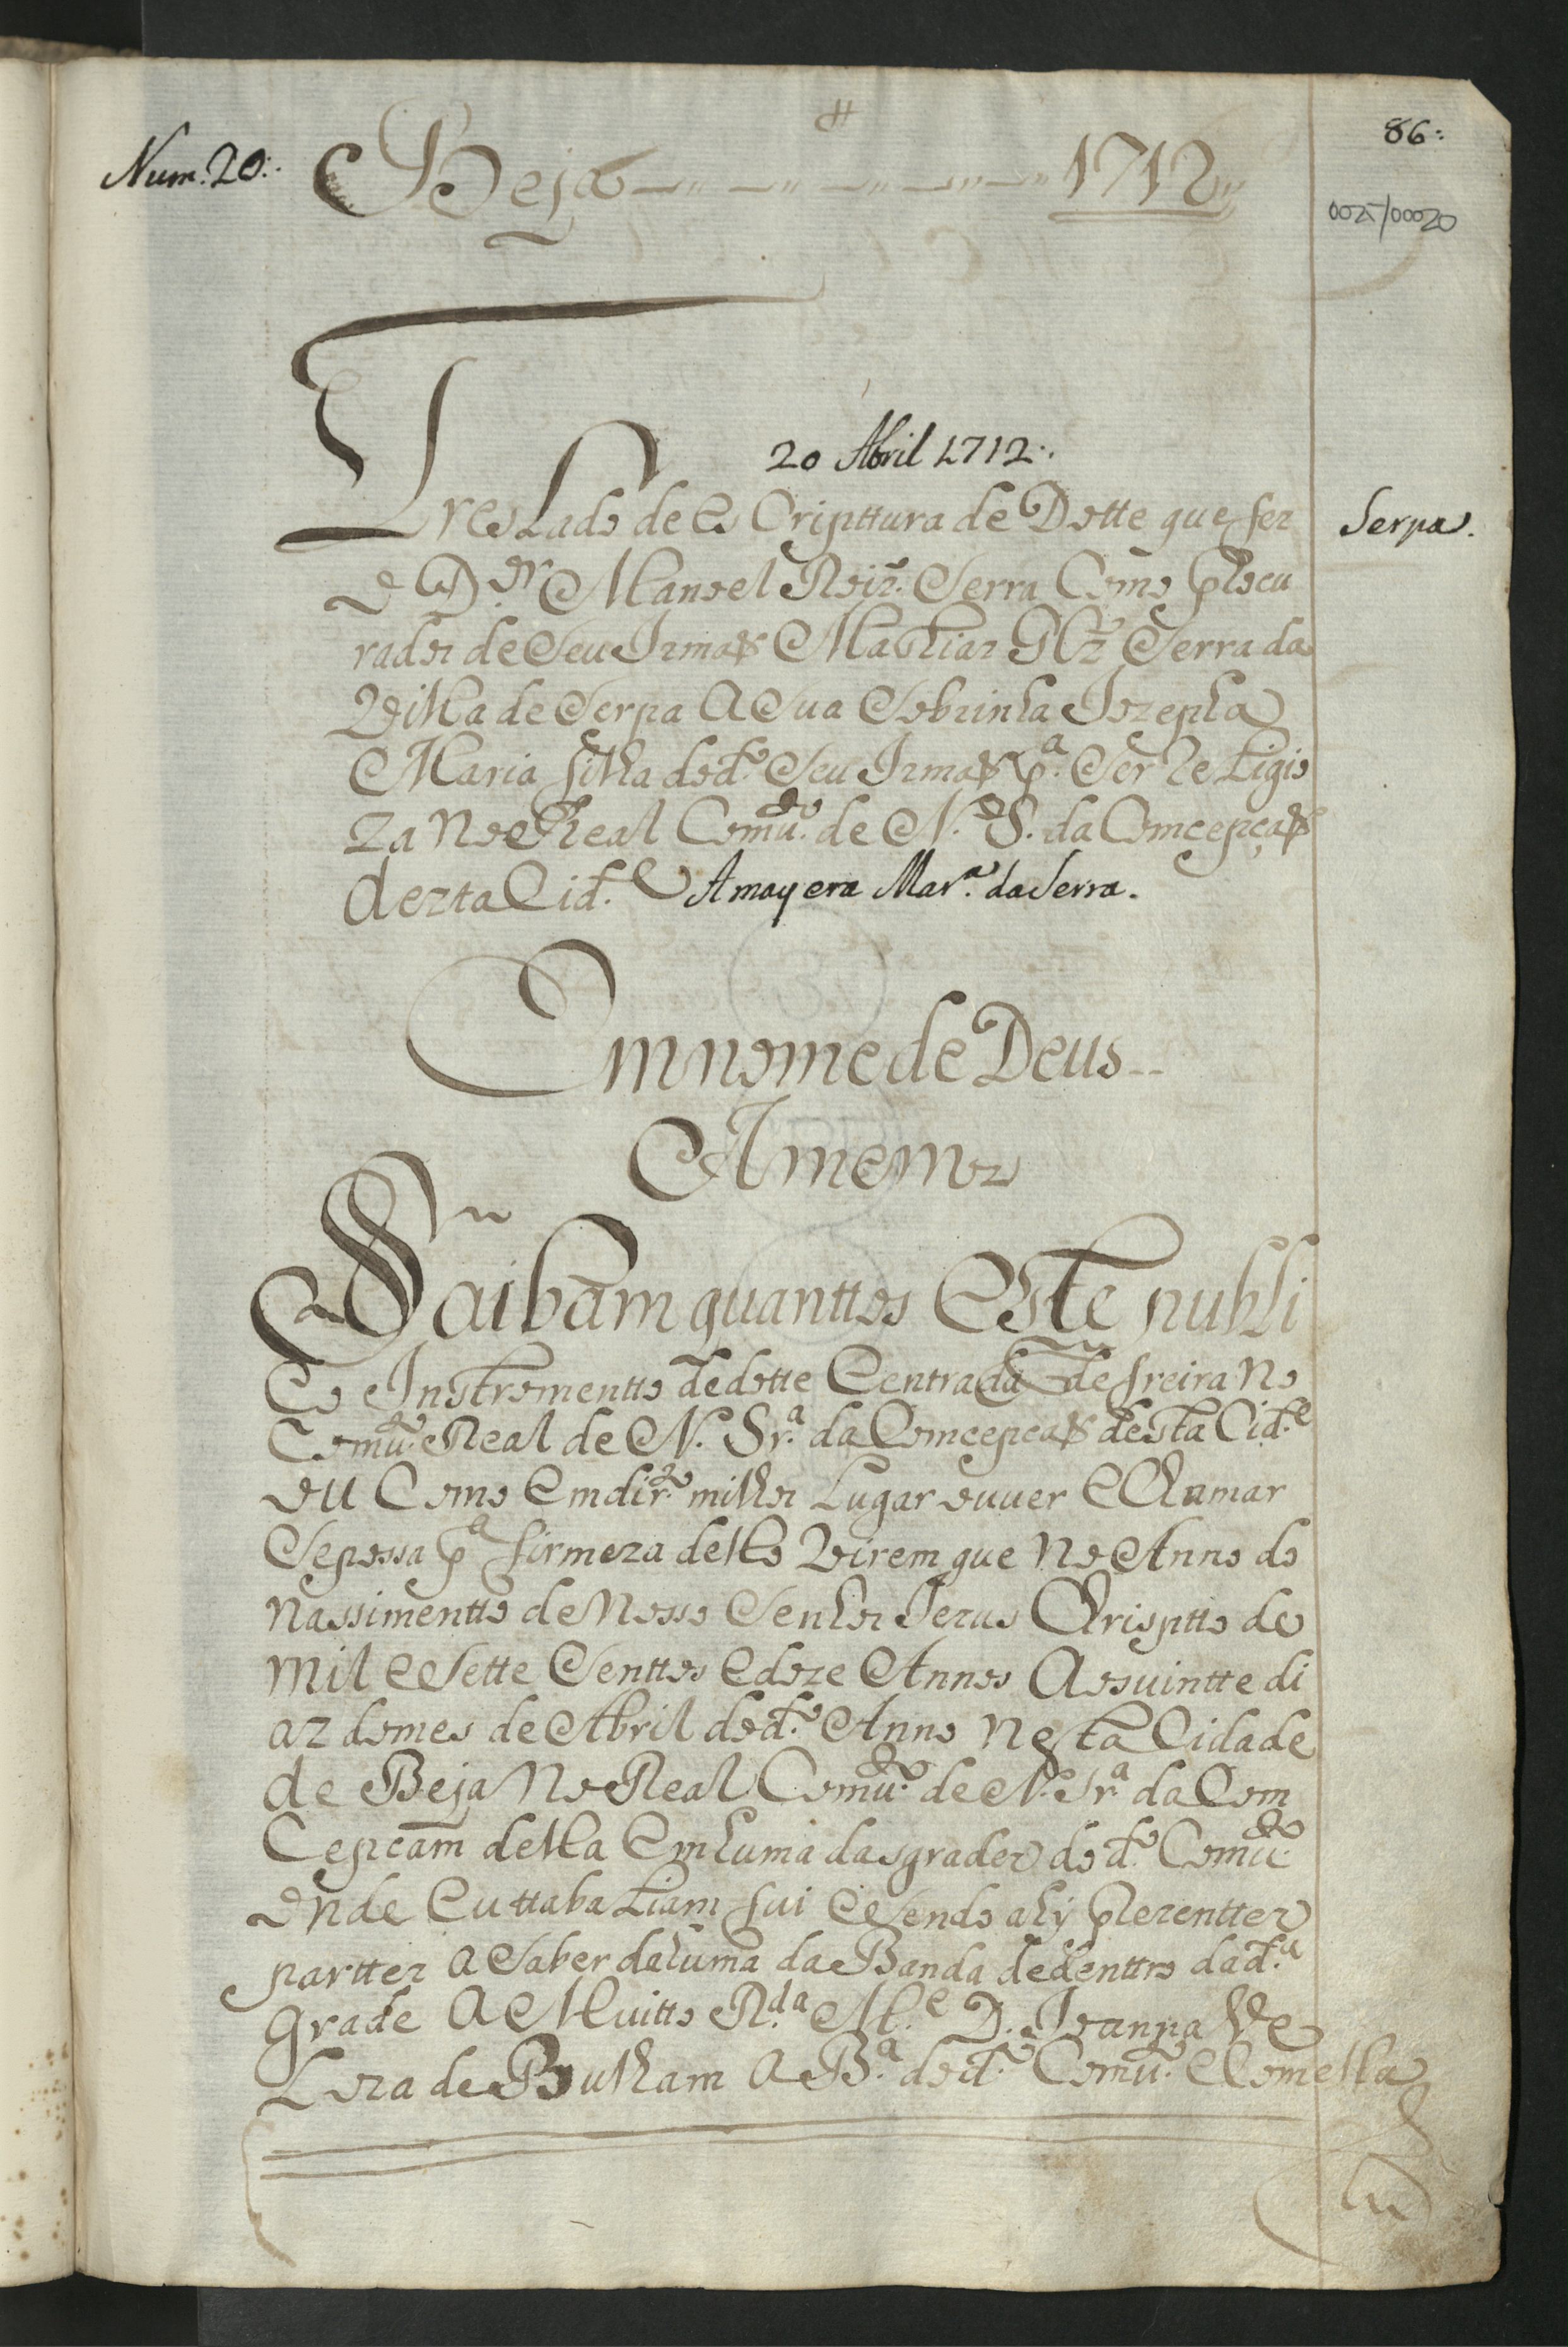 86:
Num. 20:.
Beja 1712
0025/00020
20 Abril 1712:.
Treslado de es Cripttura de Dotte que fez
Serpa.
o D.or Manoel Roiz. Serra Como Procu
rador de Seu Irmaõ Mathias Glz Serra da
Villa de Serpa A Sua Sobrinha Jozepha
Maria filha do d.o Seu Irmaõ p.a Ser Religio
za No Real Comu.to de N. S. da Comcepçaõ
dezta Cid.e A may era Mar.a da Serra.
Em nome de Deus
Amem
Saibam quanttos Este publi
Co Instromentto de dotte E entrada de freira No
Comu.to Real de N. Sr.a da Comcepcaõ desta Cid.e
ou Como Em dir.to milhor Lugar ouuer E Chamar
Se possa p.a firmeza dello Virem que No Anno do
Nassimentto de Nosso Senhor Jezus Chrisptto de
Mil e Sette Senttos E doze Annos Aos uintte di
az do mes de Abril do d.o Anno Nesta Cidade
de Beja No Real Comu.to de N. Sr.a da Com
Cepcam della Em huma das grades do d.o Comu.to
onde Eu ttabaliam fui E Sendo ahÿ prezenttez
parttez A Saber da huma da Banda de denttro da d.a
grade A Muitto R.da M.e D. Joanna Ve
Loza de Bulham A B.a do d.o Comu.to E Com ella